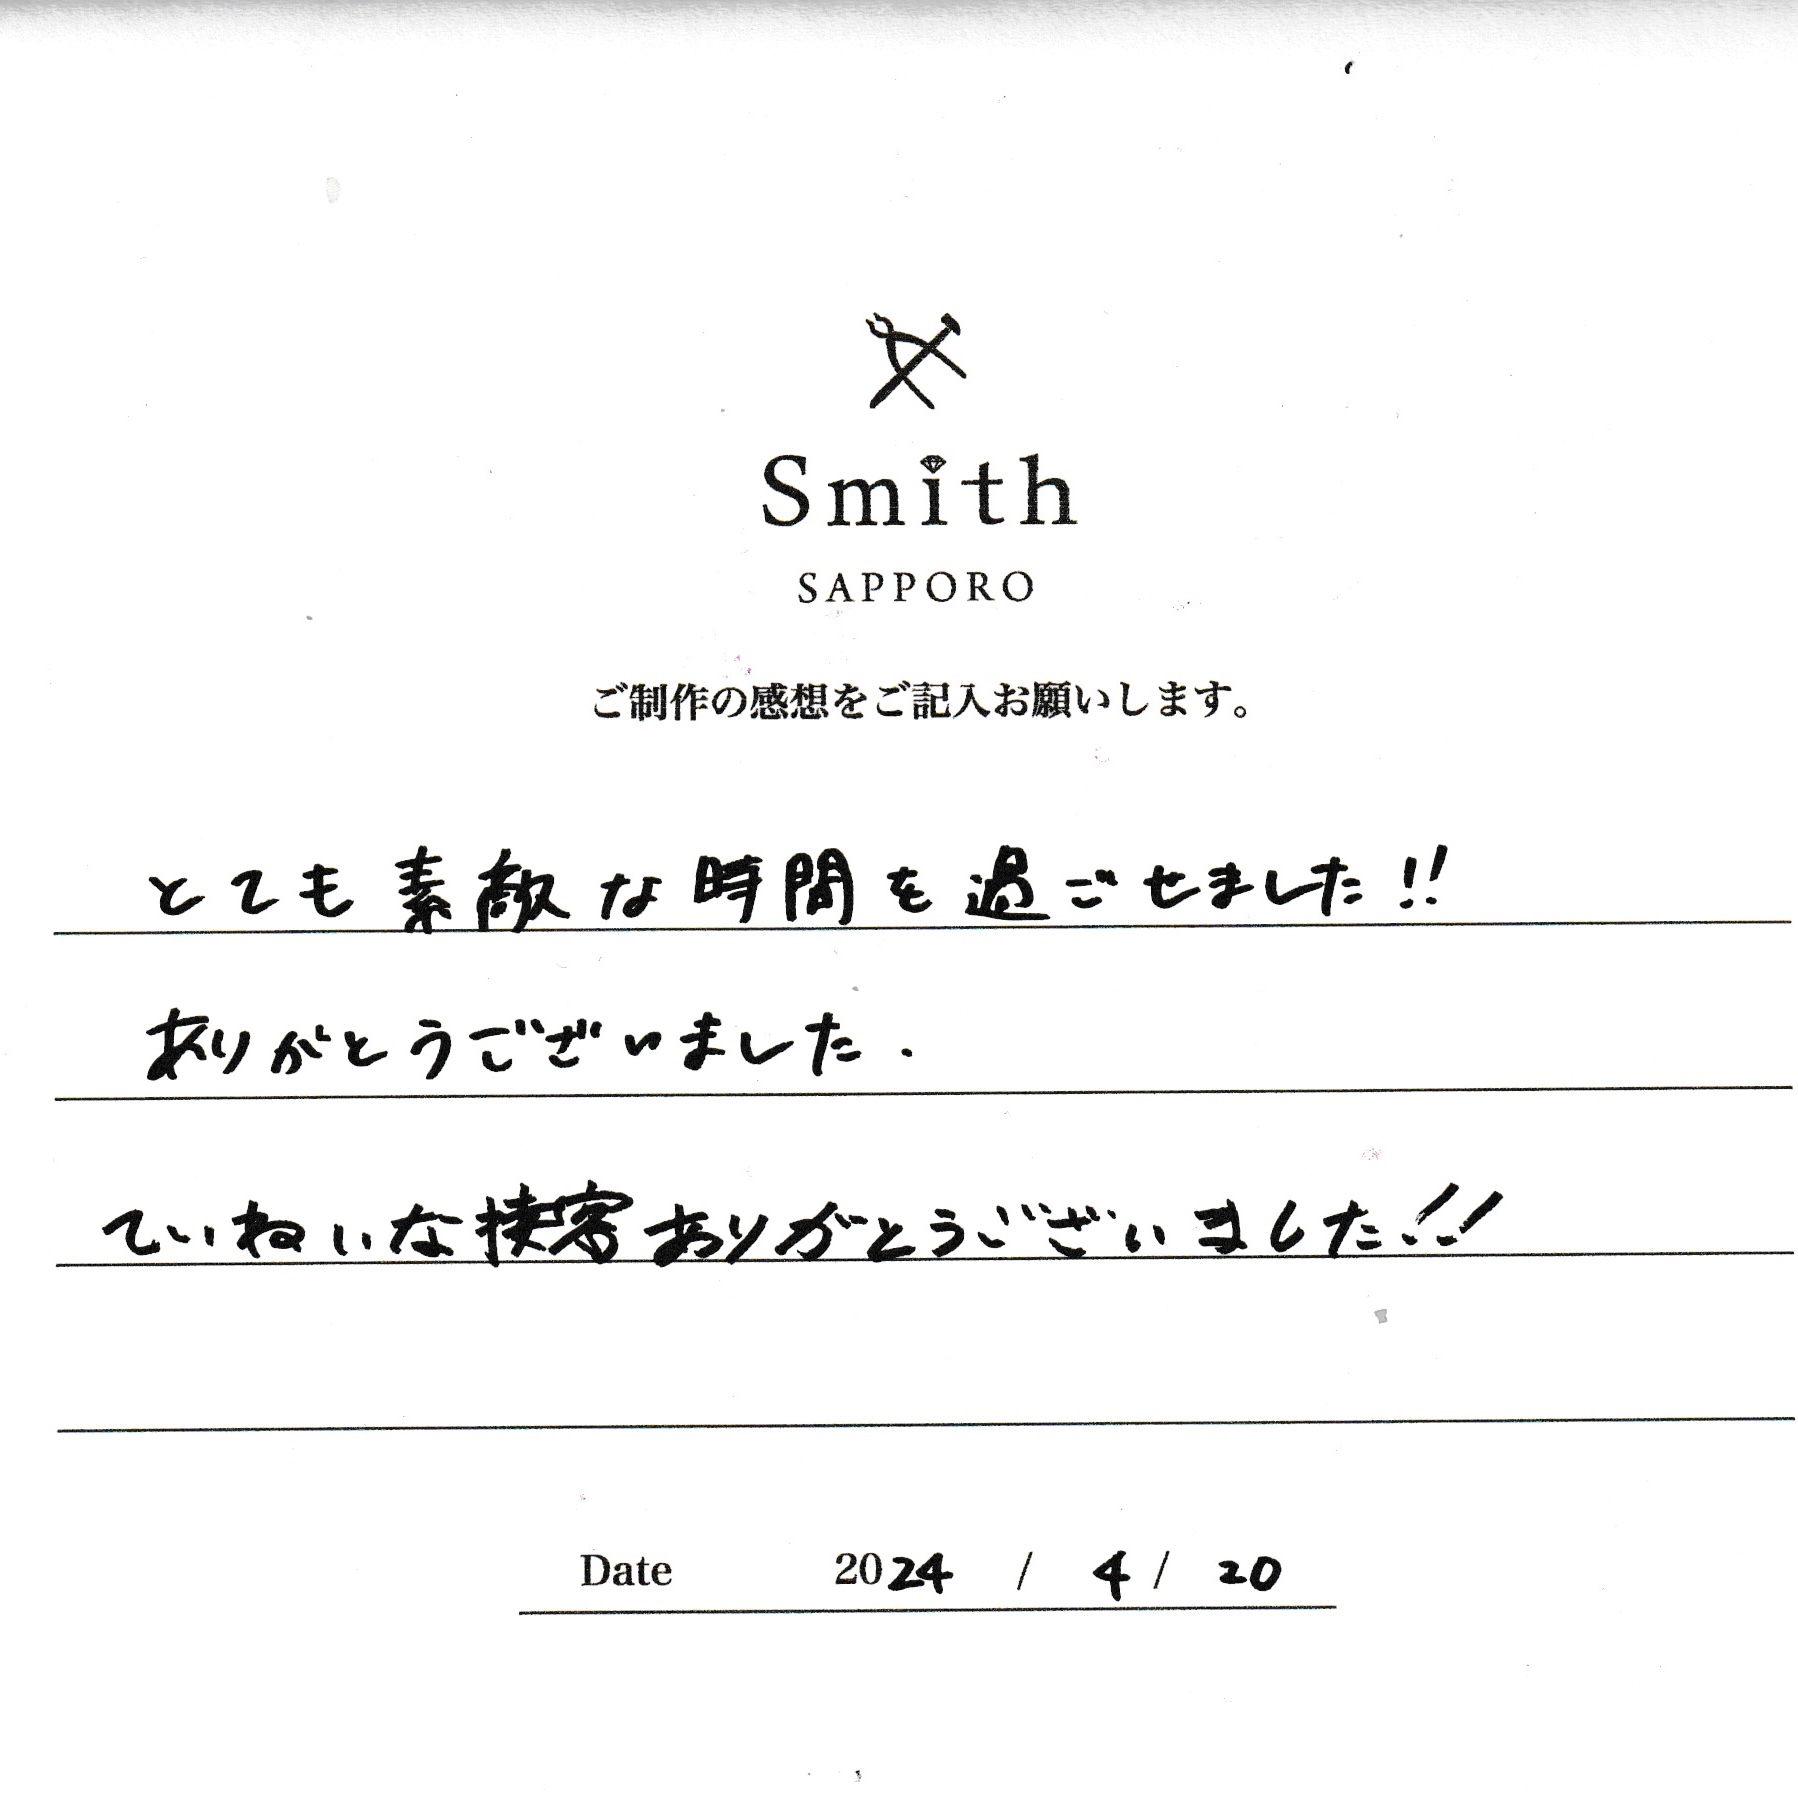 Smith
SAPPORO
ご制作の感想をご記入お願いします。
とても素敵な時間を過ごせました!!
ありがとうございました.
ていねいな接客ありがとうございました!!
Date 2024 / 4 / 20